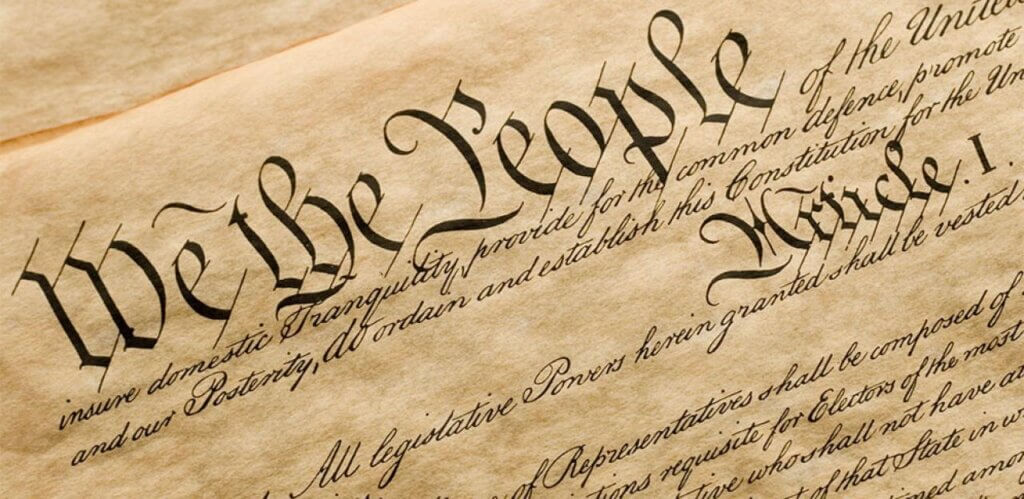 We the People of the United
insure domestic Tranquility, provide for the common defence, promote
and our Posterity, do ordain and establish this Constitution for the Un
Article. I.
All legislative Powers herein granted shall be vested
of Representatives shall be composed of
tions requisite for Electors of the most
who shall not have
of that State in
among